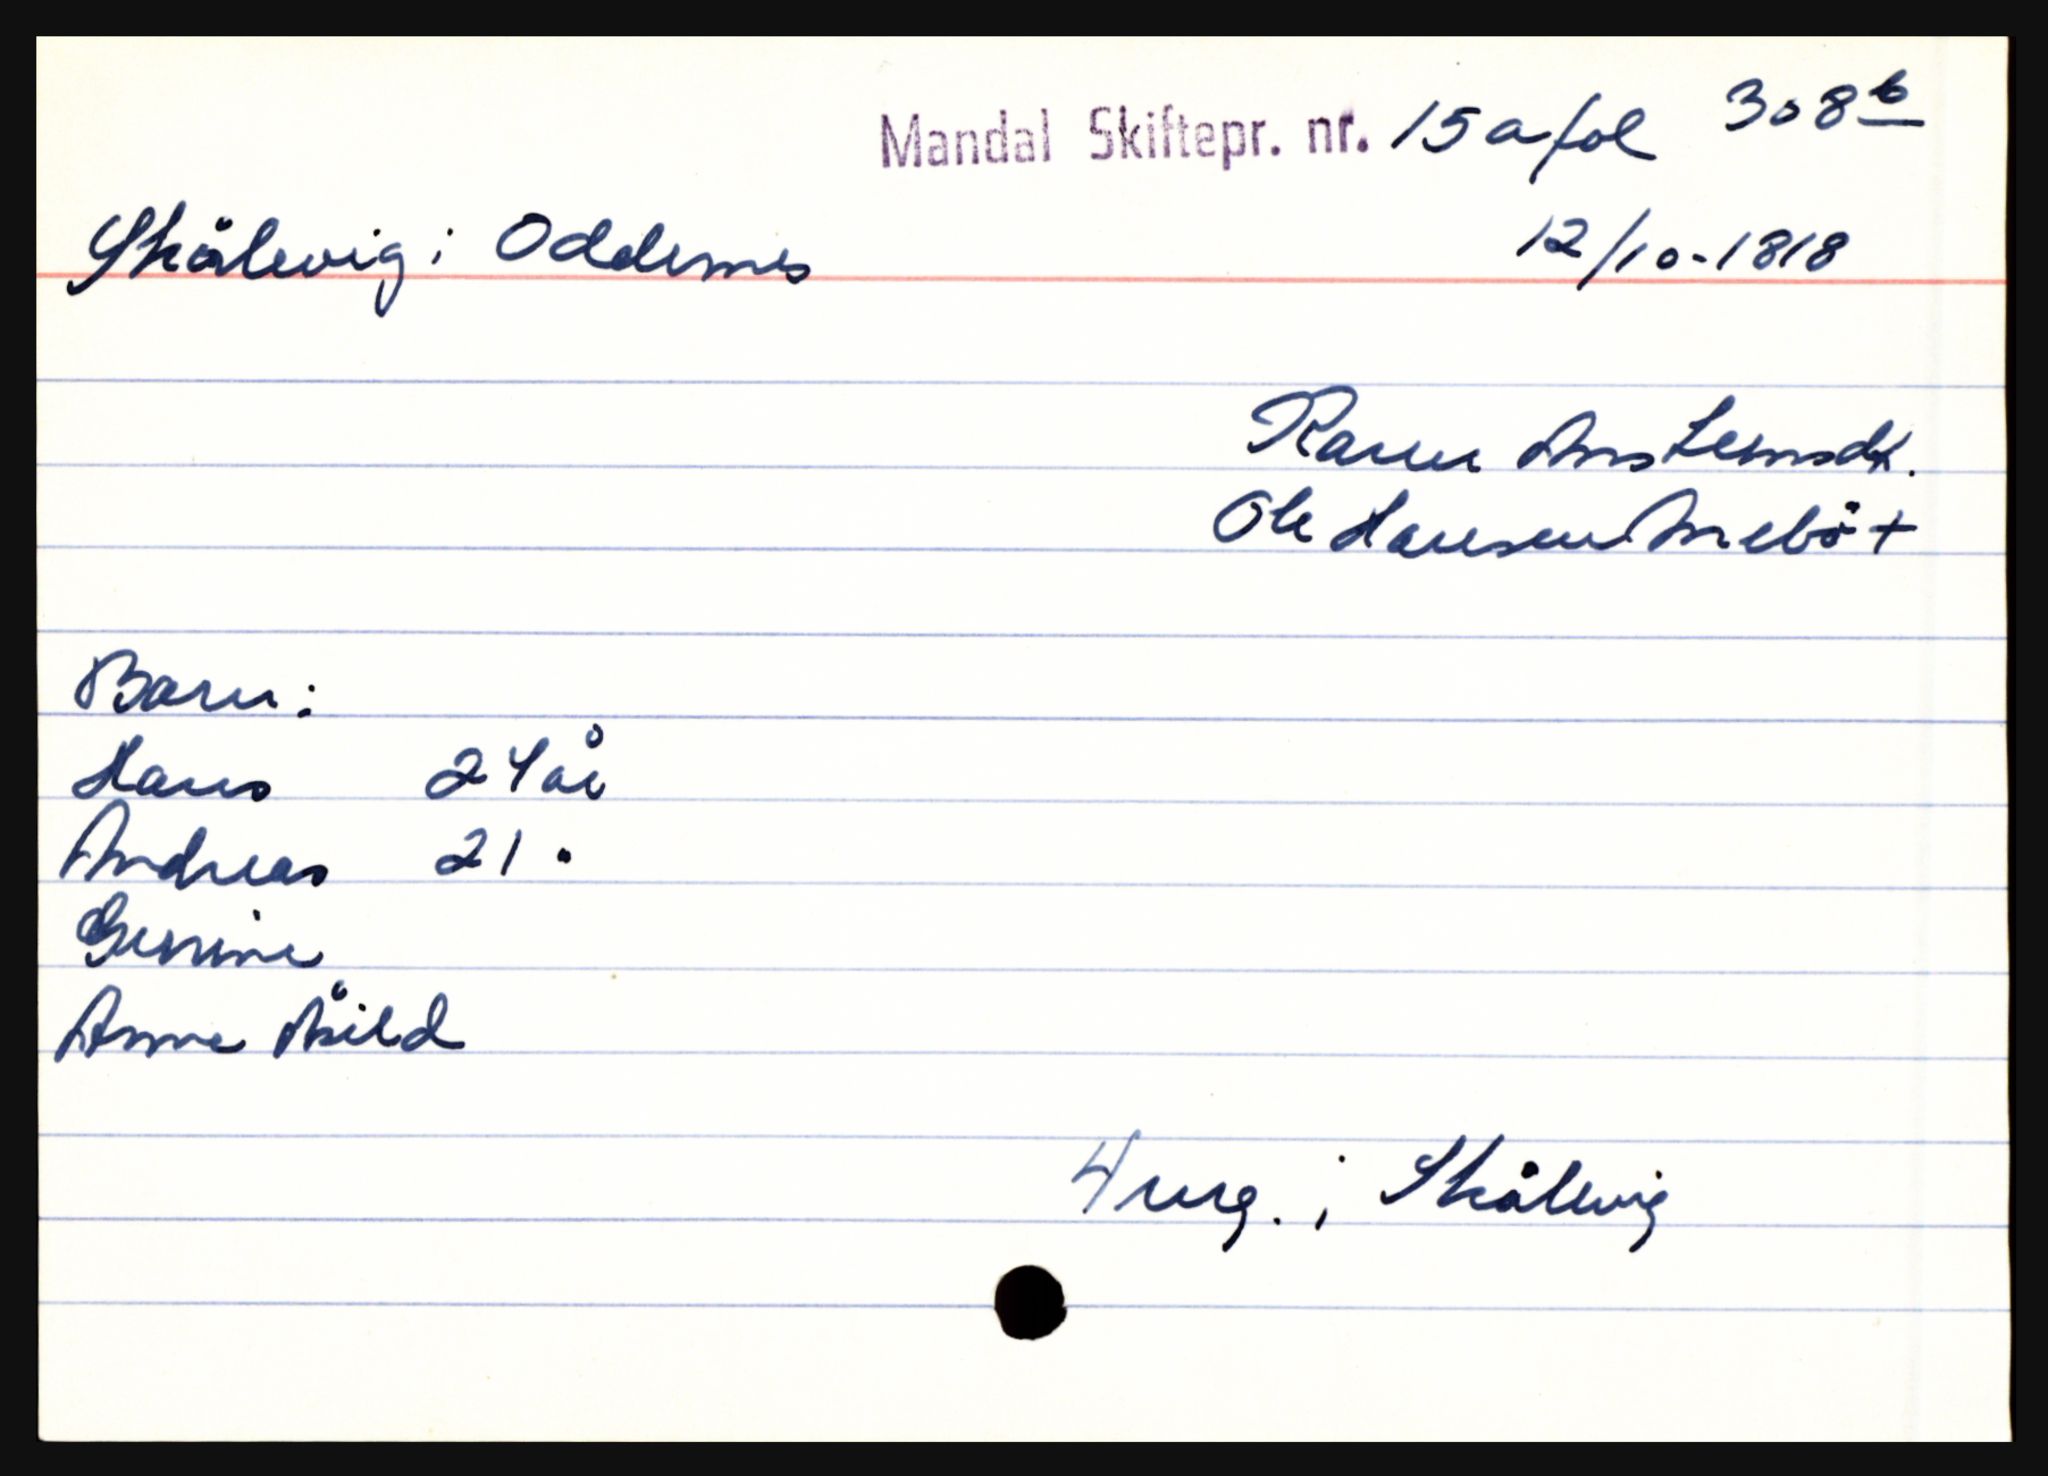 Mandal Skiftepr. nr. 15a fol 308b
Skålevig i Oddernes 12/10-1818
Karen Anstensdt.
Ole Hansen Mebö +
Barn:
Hans 24 år
Andreas 21 "
Gunine
Anne Åsild
4 mrg. i Skålevig